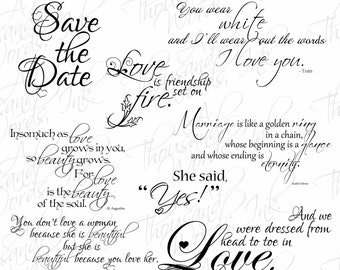 Save
the
Date
You wear
white
and I'll wear out the words
I love you.
- Train
Love
is friendship
set on
fire.
Insomuch as love
grows in you,
so beauty grows.
For love
is the beauty
of the soul.
St. Augustine
Marriage is like a golden ring
in a chain,
whose beginning is a glance
and whose ending is
eternity.
She said,
"Yes!"
You don't love a woman
because she is beautiful
but she is
beautiful because you love her.
And we
were dressed from
head to toe in
Love.